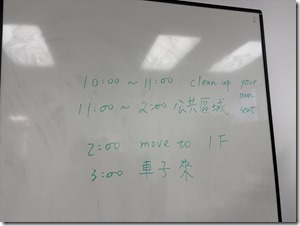 10:00 ~ 11:00 clean up your own seat
11:00 ~ 2:00 公共區域
2:00 move to 1F
3:00 車子來